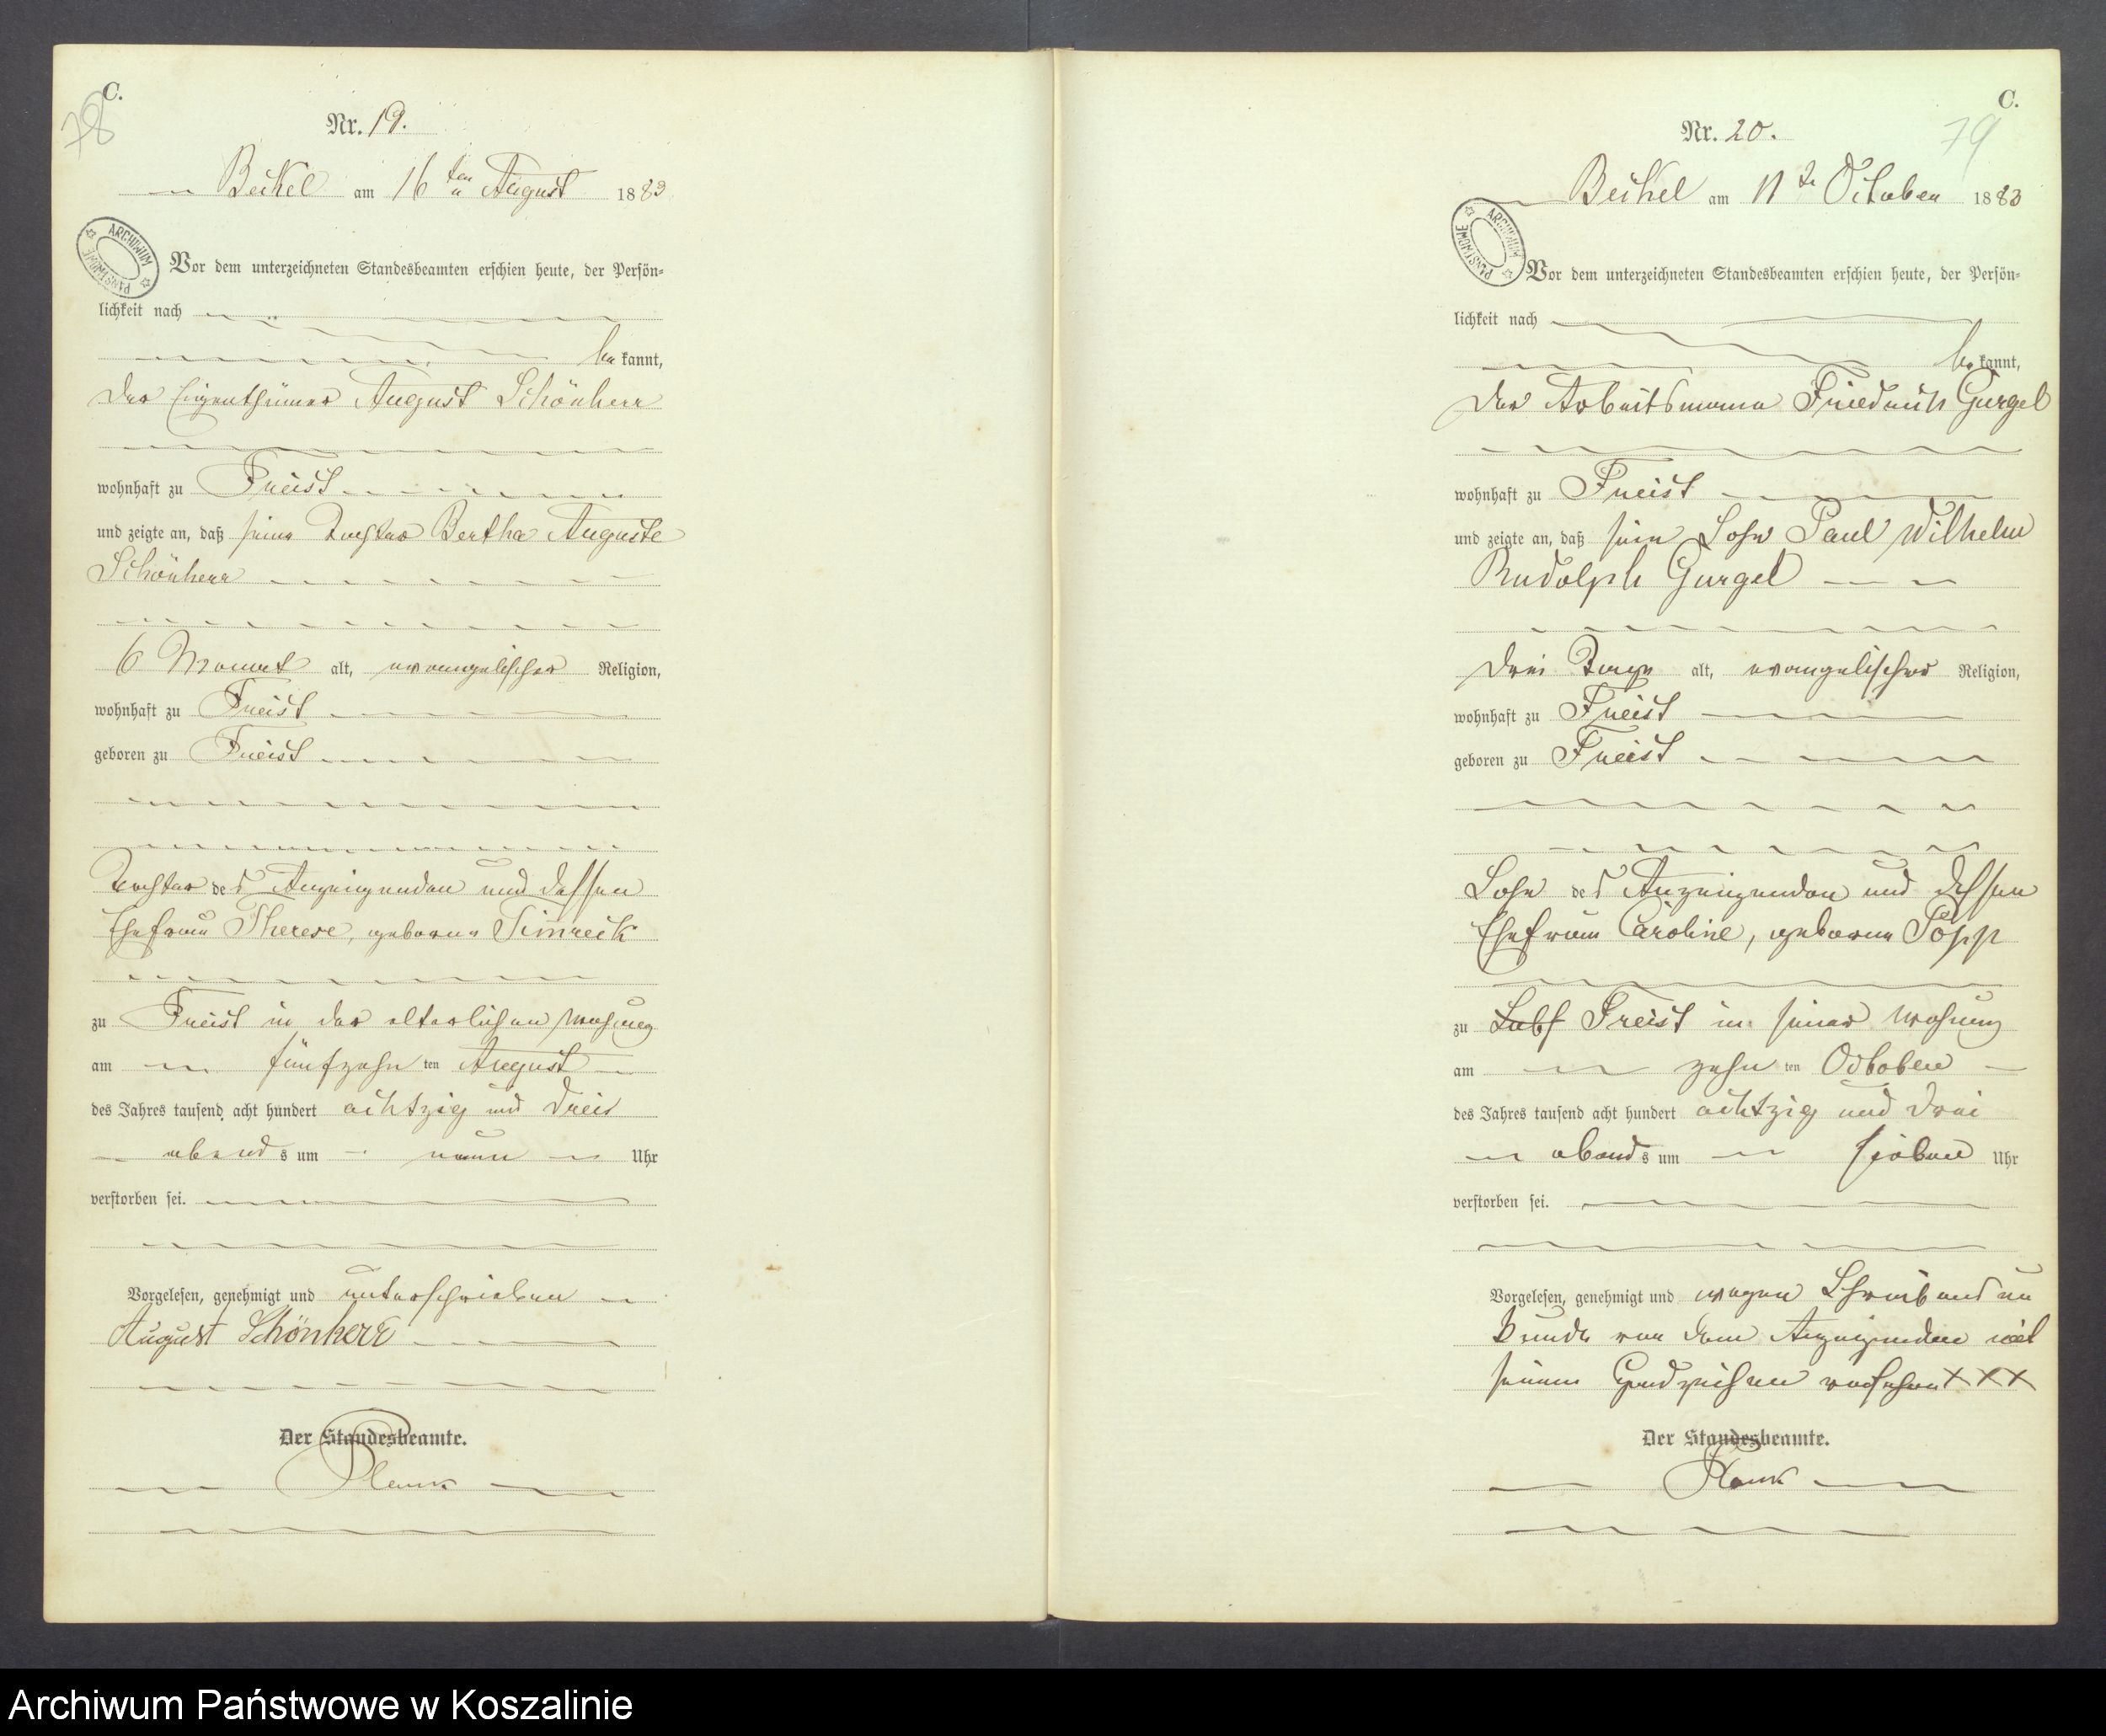 C.
78
Nr. 19.
Beckel am 16 ten August 1883
ARCHIWUM PAŃSTWOWE
Vor dem unterzeichneten Standesbeamten erschien heute, der Persön-
lichkeit nach
be kannt,
der Eigenthümer August Schönherr
wohnhaft zu Freist
und zeigte an, daß seine Tochter Bertha Auguste
Schönherr
6 Monat alt, evangelischer Religion,
wohnhaft zu Freist
geboren zu Freist
Tochter des Anzeigenden und dessen
Ehefrau Therese, geborne Timreck
zu Freist in der elterlichen Wohnung
am fünfzehn ten August
des Jahres tausend acht hundert achtzig und drei
abends um neun Uhr
verstorben sei.
Vorgelesen, genehmigt und unterschrieben
August Schönherr
Der Standesbeamte.
C.
79
Nr. 20.
Beckel am 11 October 1883
ARCHIWUM PAŃSTWOWE
Vor dem unterzeichneten Standesbeamten erschien heute, der Persön-
lichkeit nach
be kannt,
der Arbeitsmann Friedrich Gurgel
wohnhaft zu Freist
und zeigte an, daß sein Sohn Paul Wilhelm
Rudolph Gurgel
drei Tage alt, evangelischer Religion,
wohnhaft zu Freist
geboren zu Freist
Sohn des Anzeigenden und dessen
Ehefrau Caroline, geborne Popp
zu Freist in seiner Wohnung
am zehn ten October
des Jahres tausend acht hundert achtzig und drei
abends um sieben Uhr
verstorben sei.
Vorgelesen, genehmigt und wegen Schreibens un
kunde von dem Anzeigenden mit
seinem Handzeichen versehen XXX
Der Standesbeamte.
Archiwum Państwowe w Koszalinie